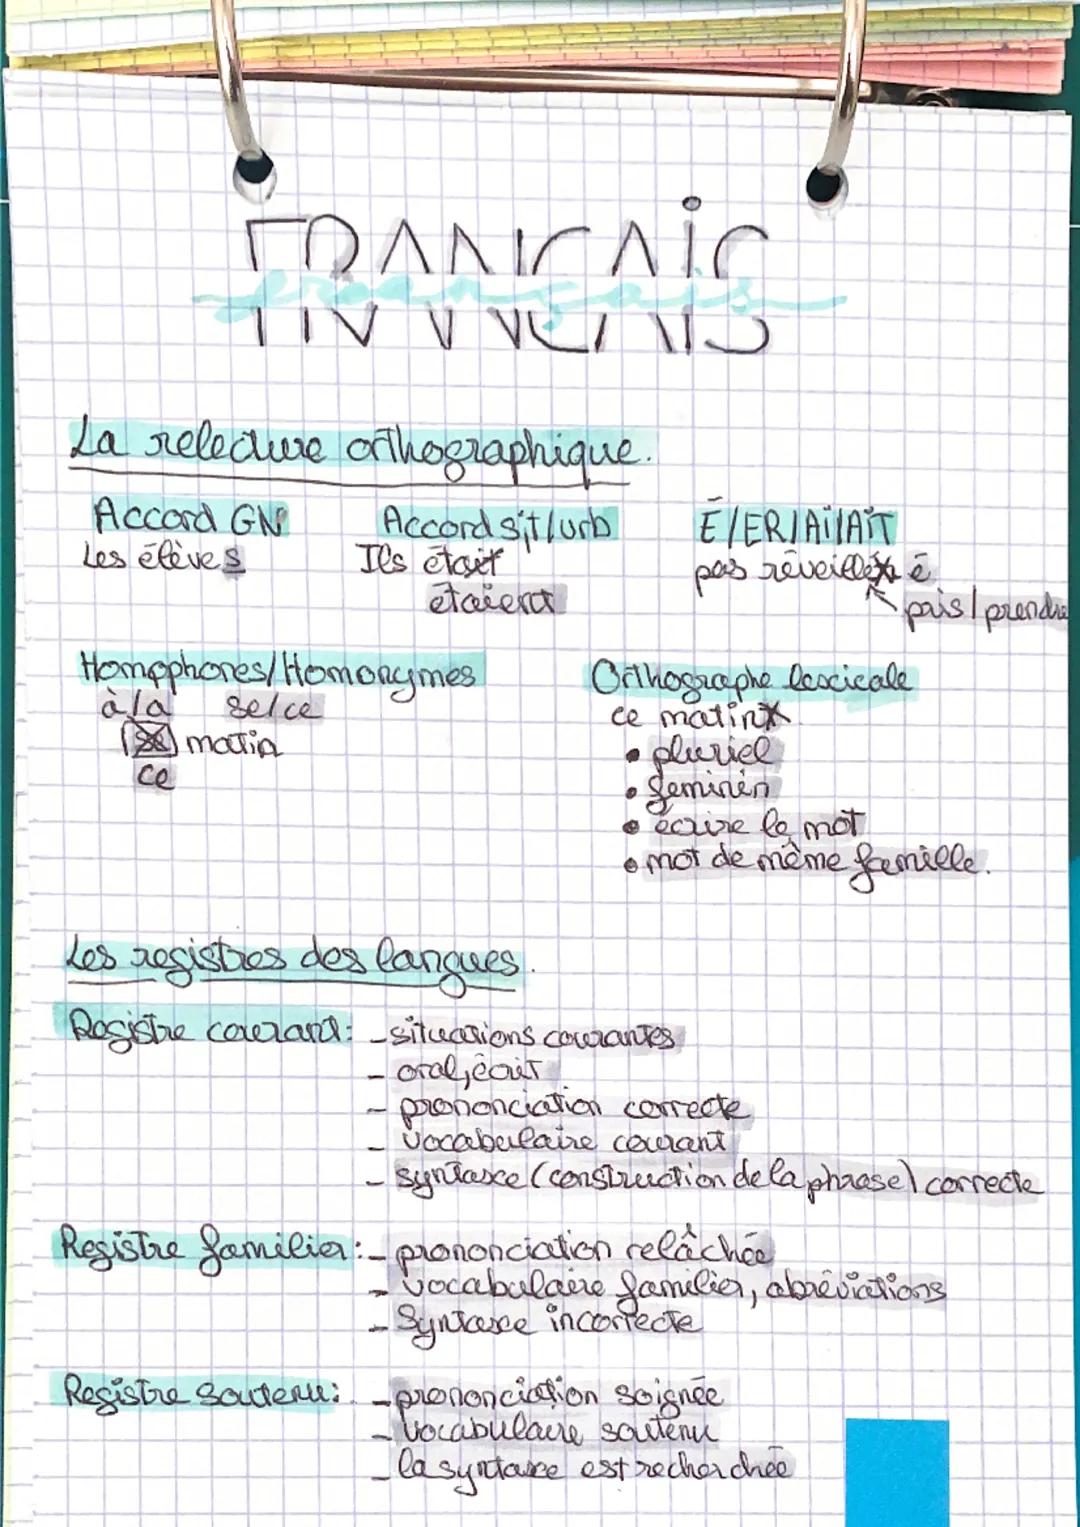 FRANCAIS
français
La relecture orthographique.
Accord GN Accord sjt/vrb É/ER/AI/AIT
Les élèves Ils était pas réveillé é
étaient pris/prendre
Homophones/Homonymes Orthographe lexicale
à/a se/ce ce matin
se matin • pluriel
ce • feminin
• écrire le mot
• mot de même famille.
Les registres des langues.
Registre courant: - situations courantes
- oral, écrit
- prononciation correcte
- vocabulaire courant
- syntaxe (construction de la phrase) correcte
Registre familier: - prononciation relâchée
- vocabulaire familier, abréviations
- Syntaxe incorrecte
Registre soutenu: - prononciation soignée
- vocabulaire soutenu
- la syntaxe est recherchée